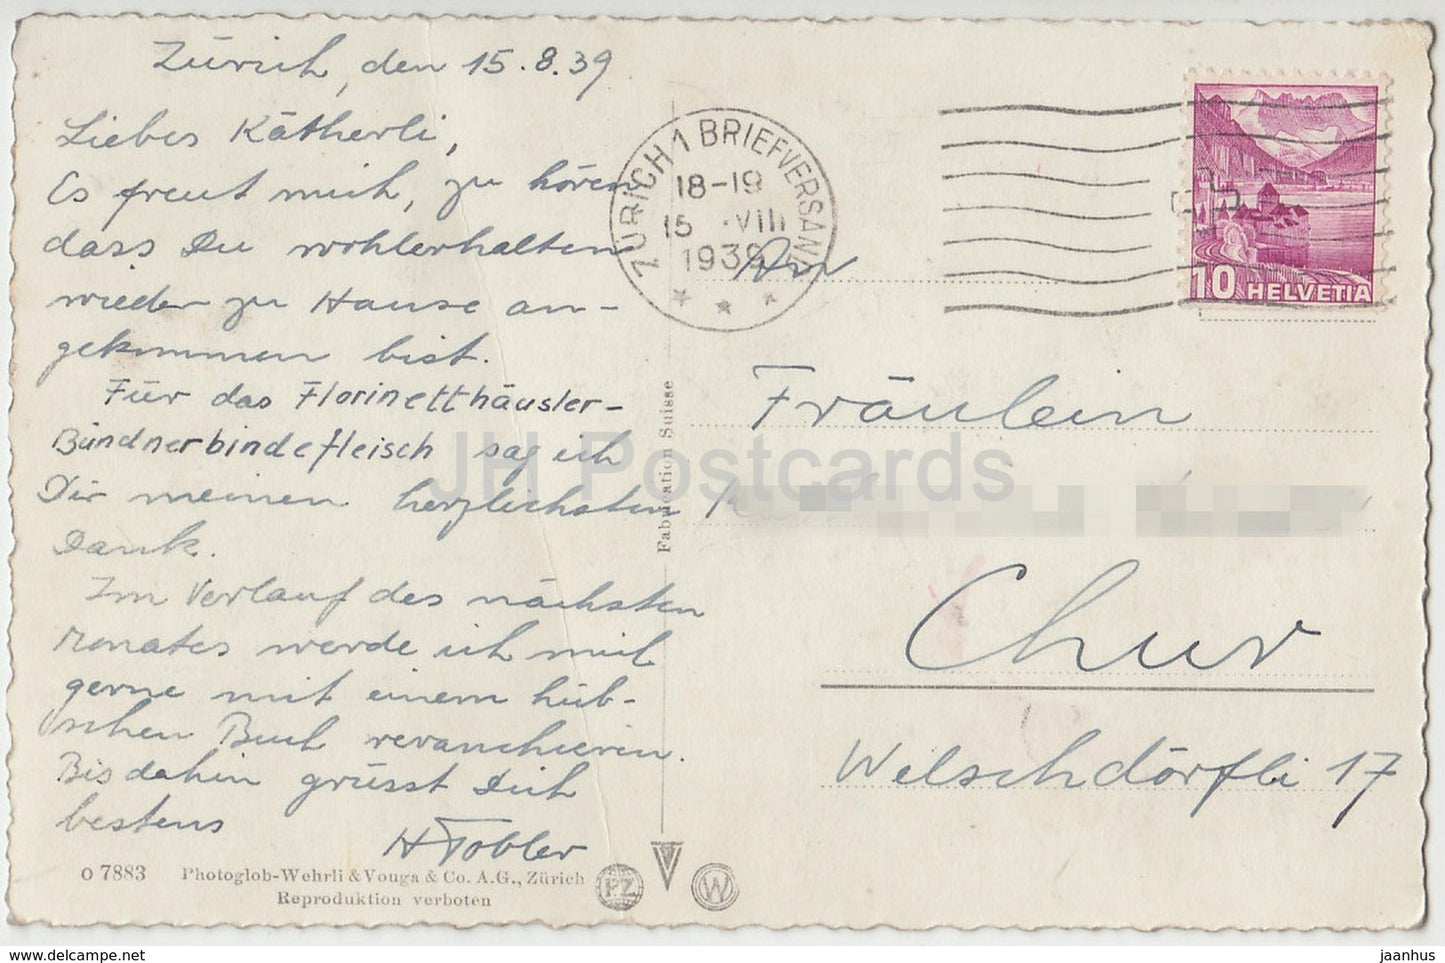 Zürich, den 15.8.39
Liebes Kätherli,
Es freut mich, zu hören
dass Du wohlerhalten
wieder zu Hause an-
gekommen bist.
Für das Florinetthäusler-
Bündnerbindefleisch sag ich
Dir meinen herzlichsten
Dank.
Im Verlauf des nächsten
Monates werde ich mich
gerne mit einem hüb-
schen Buch revanchieren.
Bis dahin grüsst Dich
bestens
H Tobler
o 7883
Photoglob-Wehrli & Vouga & Co. A.G., Zürich
Reproduktion verboten
PZ
W
Fabrication Suisse
ZÜRICH 1 BRIEFVERSAND
18-19
15. VIII
1939
10 HELVETIA
An
Fräulein
Chur
Welschdörfli 17
JH Postcards
https://www.delcampe.net
jaanhus